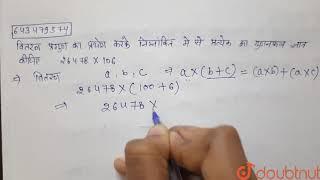 643479574
वितरण प्रगुण का प्रयोग करके निम्नांकित में से प्रत्येक का गुणनफल ज्ञात
कीजिए 26478 X 106
⇒ वितरण a, b, c ⇒ a×(b+c) = (a×b)+(a×c)
26478 × (100+6)
⇒ 26478 ×
doubtnut